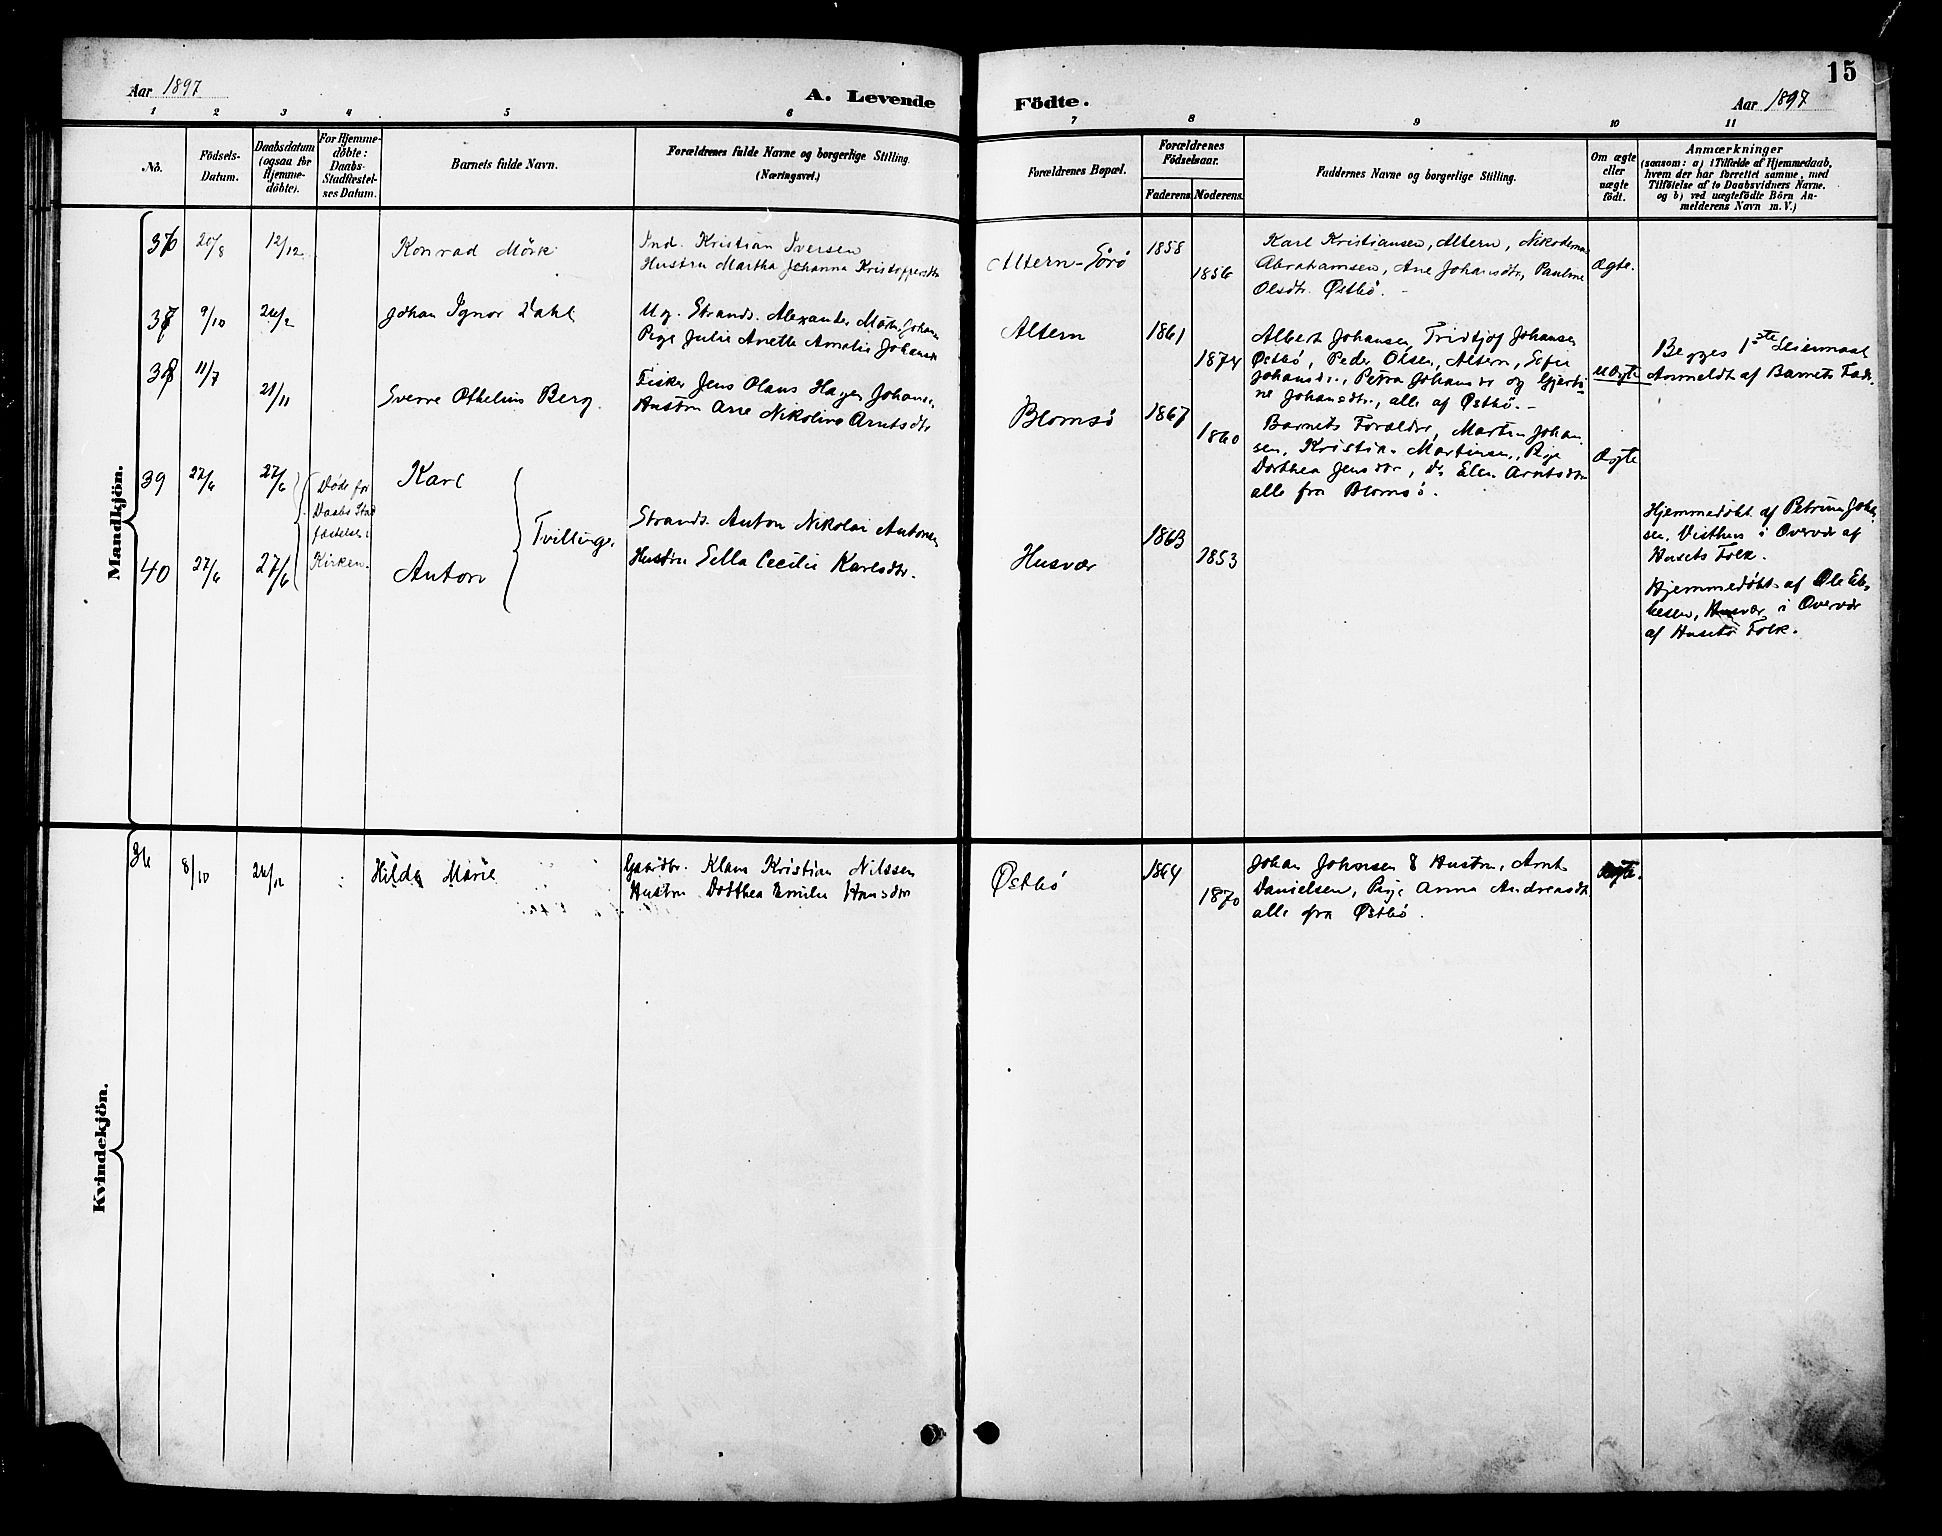 Aar 1897
A. Levende
Födte.
15
Aar 1897
1 2 3 4 5 6 7 8 9 10 11
No.
Födsels-
Datum.
Daabsdatum
(ogsaa for
Hjemme-
døbte).
For Hjemme-
døbte:
Daabs-
Stadfæstel-
ses Datum.
Barnets fulde Navn.
Forældrenes fulde Navne og borgerlige Stilling.
(Næringsvei.)
Forældrenes Bopæl.
Forældrenes
Födselsaar.
Faderens
Moderens.
Faddernes Navne og borgerlige Stilling.
Om ægte
eller
uægte
födt.
Anmærkninger
(saasom: a) i Tilfælde af Hjemmedaab,
hvem der har forrettet samme, med
Tilföielse af to Daabsvidners Navne.
og b) ved uægtefödte Börn An-
melderens Navn m. V.)
Mandkjön.
36
20/8
12/12
Konrad Mörk
Ind. Kristian Iversen
Hustru Martha Johanna Kristoffersdtr
Altern-Sörö
1858
1856
Karl Kristiansen, Altern, Nikodemus
Abrahamsen, Ane Johansdtr, Pauline
Olsdtr. Østbö.
Ægte.
37
9/10
Johan Ignor Dahl
Ug. Strands. Alexander Mörk Johans
Pige Julie Anette Amalie Johansd
Altern
1861
1874
Albert Johansen, Fridtjof Johansen
Østbö, Peder Olsen, Altern, Sofie
Johansdr., Petra Johansdr og Gjerti-
ne Johansdtr., alle af Østbö.
uægte
Begges 1ste Leiermaal
Anmeldt af Barnets Fader.
38
11/7
21/11
Sverre Othelius Berg.
Fisker Jens Olaus Hagen Johans.
Hustru Ane Nikoline Arntsdtr
Blomsö
1867
1860
Barnets Forældre, Martin Johan-
sen, Kristian Martinsen, Pige
Dorthea Jensdtr, do Elen Arntsdtr
alle fra Blomsö.
Ægte
39
27/6
27/6
Døde før
Daabs Stad
fæstelse i
Kirken.
Karl
Tvillinger
Strands. Anton Nikolai Antonsen
Hustru Sella Cecilie Karlsdtr.
Husvær
1863
1853
Hjemmedøbt af Petrine Johan-
sen, Visthus i Overvær af
Husets Folk.
40
27/6
27/6
Anton
Hjemmedøbt af Ole
Husvær i Overvær
af Husets Folk.
Kvindekjön.
36
8/10
26/12
Hilda Marie
Gaardbr. Klaus Kristian Nilssen
Hustru Dotthea Emilie Hansdtr
Østbö
1864
1870
Johan Johnsen & Hustru, Arnt
Danielsen, Pige Anna Andreasdt.
alle fra Østbö.
Ægte.